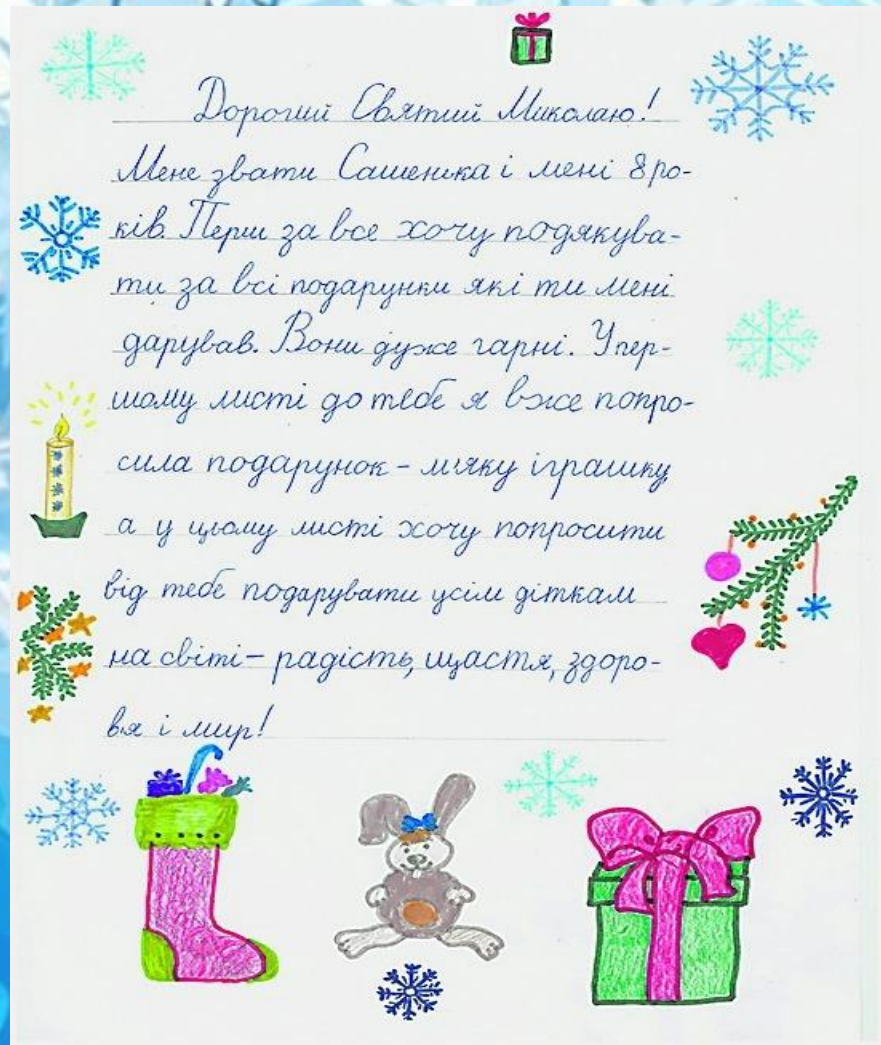 Дорогий Святий Миколаю!
Мене звати Сашенька і мені 8 ро-
ків. Перш за все хочу подякува-
ти за всі подарунки які ти мені
дарував. Вони дуже гарні. У пер-
шому листі до тебе я вже попро-
сила подарунок - м'яку іграшку,
а у цьому листі хочу попросити
від тебе подарувати усім діткам
на світі - радість, щастя, здоро-
вя і мир!